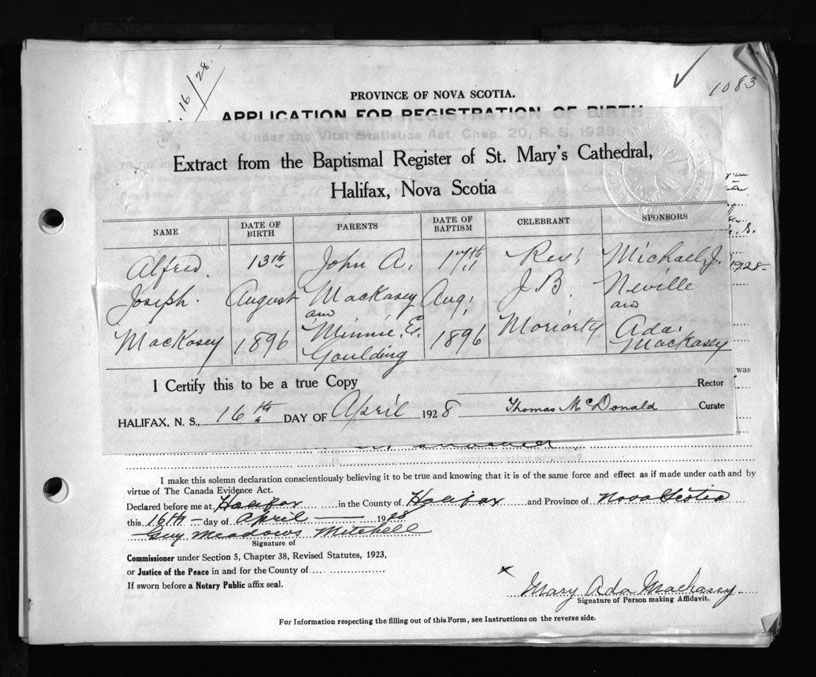 16/28
1083
PROVINCE OF NOVA SCOTIA.
APPLICATION FOR REGISTRATION OF BIRTH
Under the Vital Statistics Act, Chap. 20, R. S. 1923.
Extract from the Baptismal Register of St. Mary's Cathedral,
Halifax, Nova Scotia
NAME DATE OF BIRTH PARENTS DATE OF BAPTISM CELEBRANT SPONSORS
Alfred. 13th John A. 17th Rev. Michael J.
1928
Joseph. August MacKasey Aug. J. B. Neville
and and
MacKasey 1896 Minnie E. 1896 Moriarty Ada
Goulding MacKasey
I Certify this to be a true Copy Rector
HALIFAX, N. S., 16th DAY OF April 1928 Thomas McDonald Curate
was
I make this solemn declaration conscientiously believing it to be true and knowing that it is of the same force and effect as if made under oath and by
virtue of The Canada Evidence Act.
Declared before me at Halifax in the County of Halifax and Province of Nova Scotia
this 16th day of April 1928
Guy Meadows Mitchell
Signature of
Commissioner under Section 5, Chapter 38, Revised Statutes, 1923,
or Justice of the Peace in and for the County of
If sworn before a Notary Public affix seal.
x Mary Ada Mackasey
Signature of Person making Affidavit.
For Information respecting the filling out of this Form, see Instructions on the reverse side.